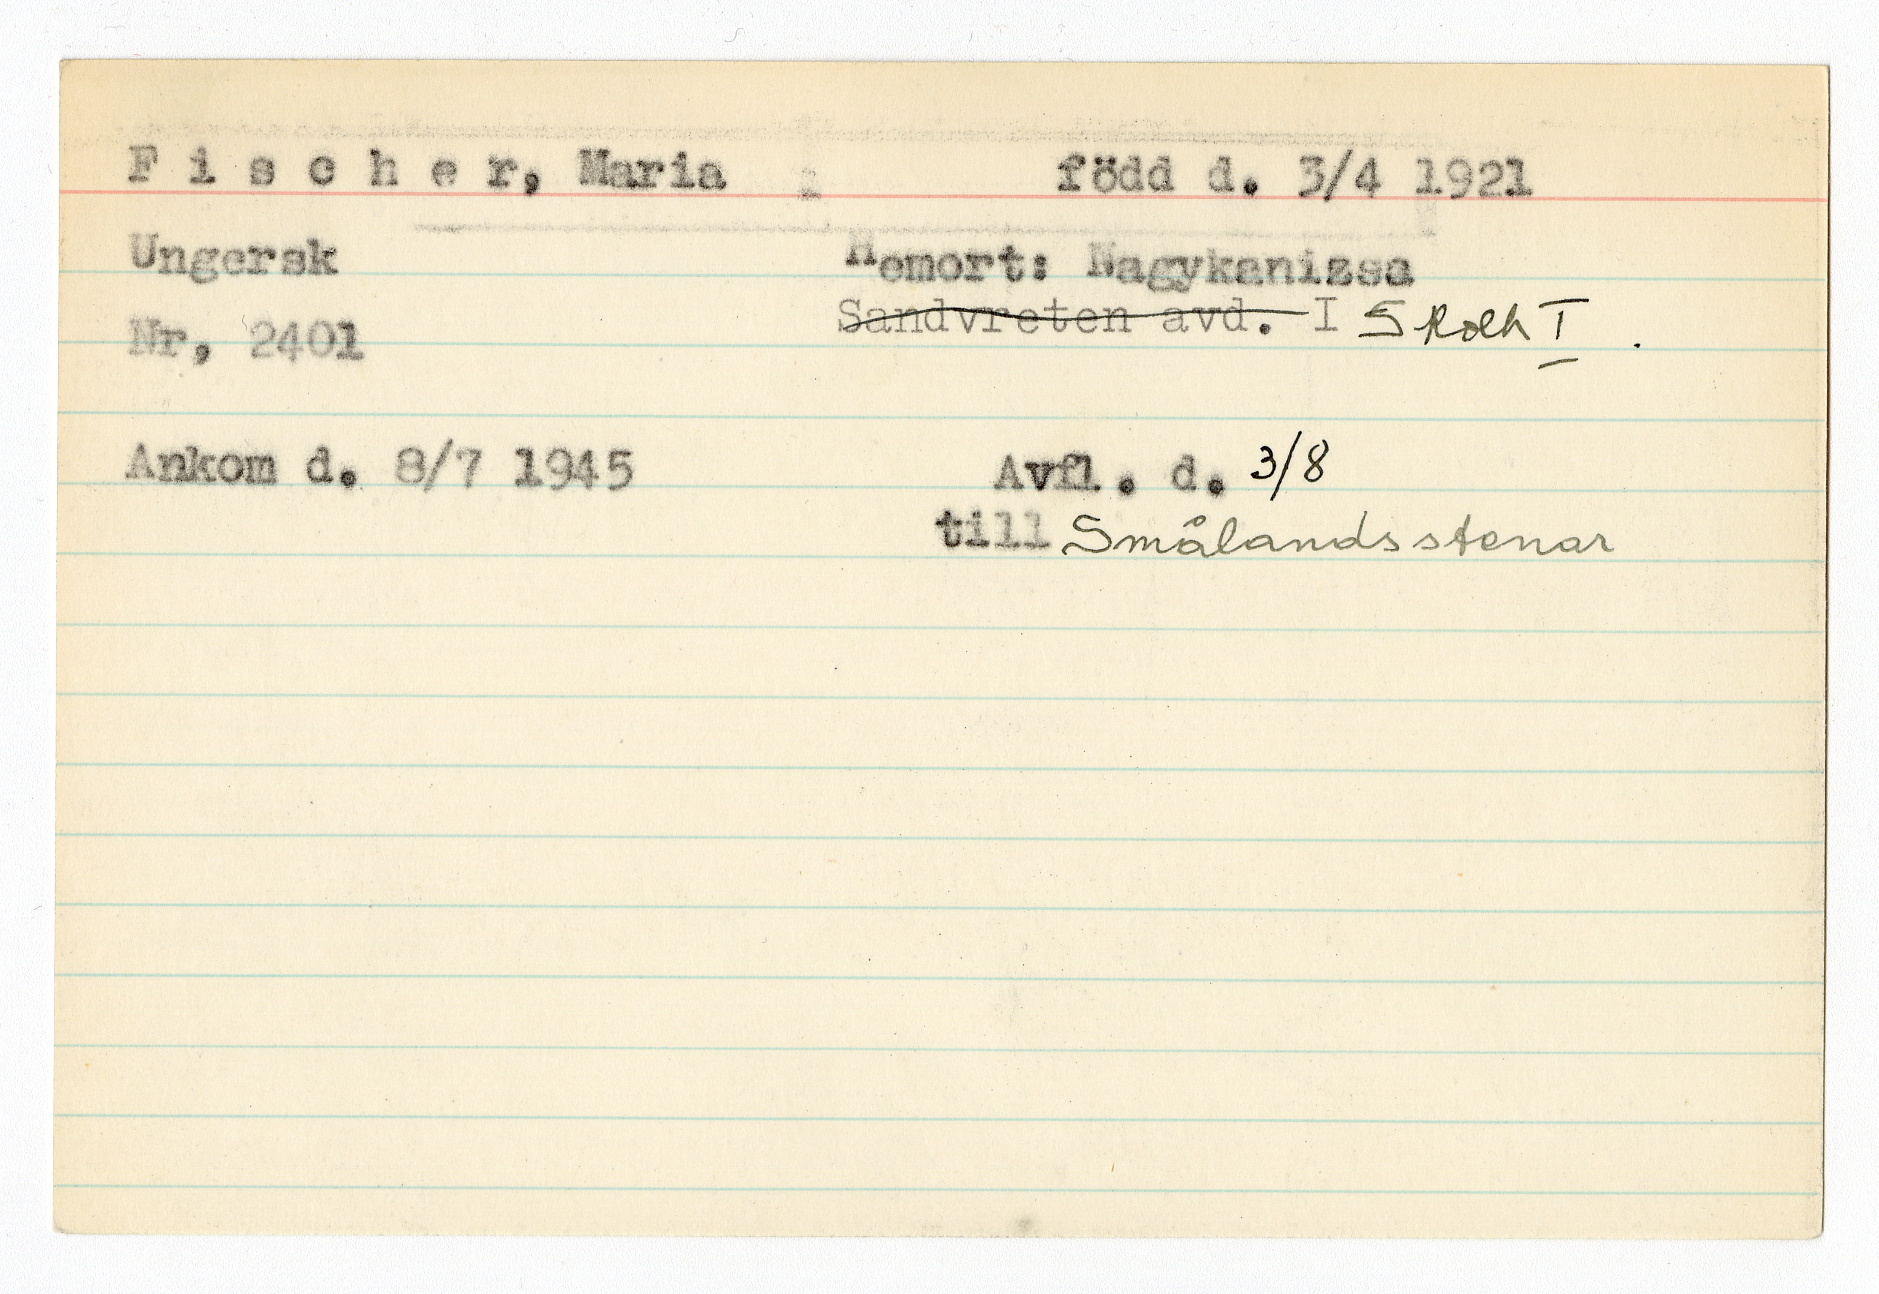 F i s c h e r, Maria född d. 3/4 1921
Ungersk Hemort: Nagykanizsa
Nr, 2401 Sandvreten avd. I I .
Ankom d. 8/7 1945 Avfl. d. 3/8
till Smålandsstenar